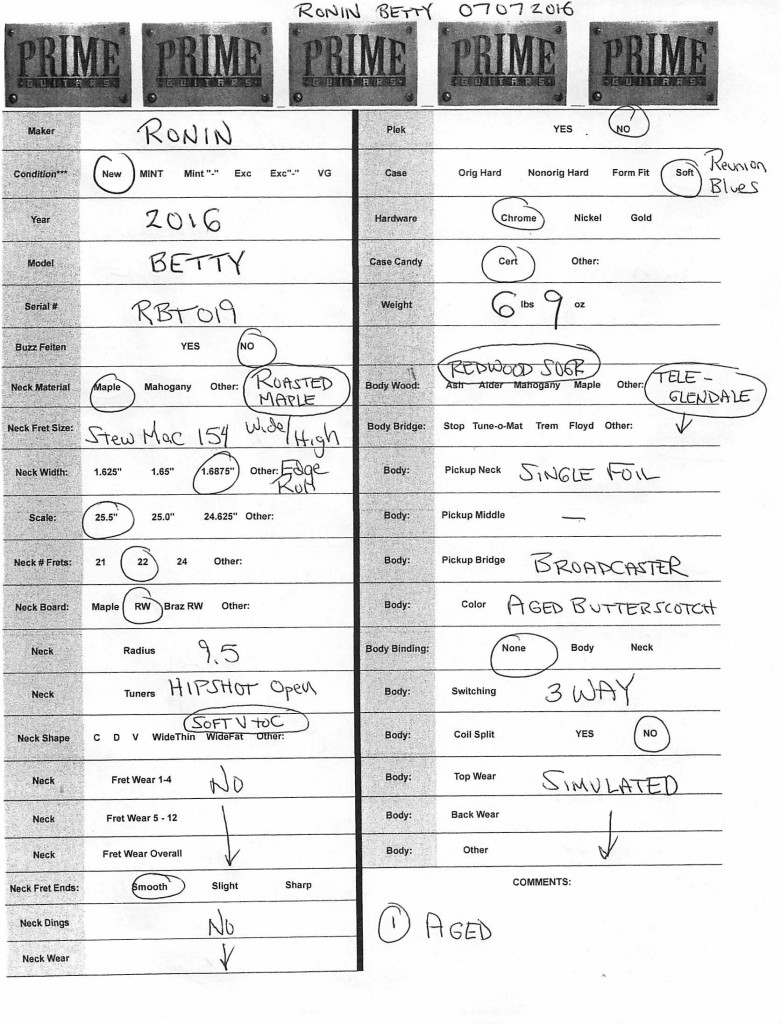 RONIN BETTY 07072016
PRIME GUITARS PRIME GUITARS PRIME GUITARS PRIME GUITARS PRIME GUITARS
Maker RONIN
Condition*** New MINT Mint "-" Exc Exc"-" VG
Year 2016
Model BETTY
Serial # RBT019
Buzz Feiten YES NO
Neck Material Maple Mahogany Other: ROASTED
MAPLE
Neck Fret Size: Stew Mac 154 Wide/High
Neck Width: 1.625" 1.65" 1.6875" Other: Edge
Roll
Scale: 25.5" 25.0" 24.625" Other:
Neck # Frets: 21 22 24 Other:
Neck Board: Maple RW Braz RW Other:
Neck Radius 9.5
Neck Tuners HIPSHOT Open
SOFT V to C
Neck Shape C D V WideThin WideFat Other:
Neck Fret Wear 1-4 NO
Neck Fret Wear 5 - 12
Neck Fret Wear Overall
Neck Fret Ends: Smooth Slight Sharp
Neck Dings NO
Neck Wear
Plek YES NO
Case Orig Hard Nonorig Hard Form Fit Soft Reunion
Blues
Hardware Chrome Nickel Gold
Case Candy Cert Other:
Weight 6 lbs 9 oz
REDWOOD
Body Wood: Ash Alder Mahogany Maple Other: TELE-
GLENDALE
Body Bridge: Stop Tune-o-Mat Trem Floyd Other:
Body: Pickup Neck SINGLE FOIL
Body: Pickup Middle —
Body: Pickup Bridge BROADCASTER
Body: Color AGED BUTTERSCOTCH
Body Binding: None Body Neck
Body: Switching 3 WAY
Body: Coil Split YES NO
Body: Top Wear SIMULATED
Body: Back Wear
Body: Other
COMMENTS:
1 AGED